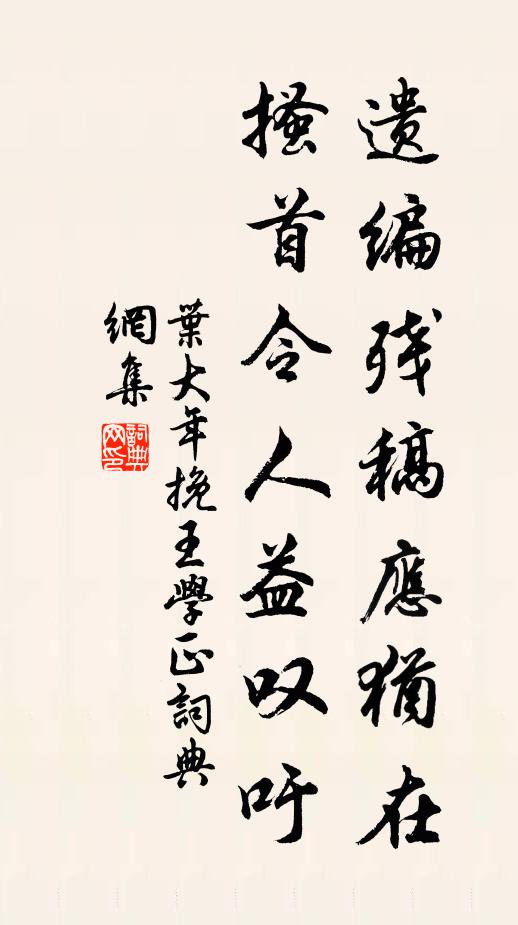 遗编残稿應猶在
搔首令人益叹吁
葉大年挽王學正詞典
網集
詞典網印